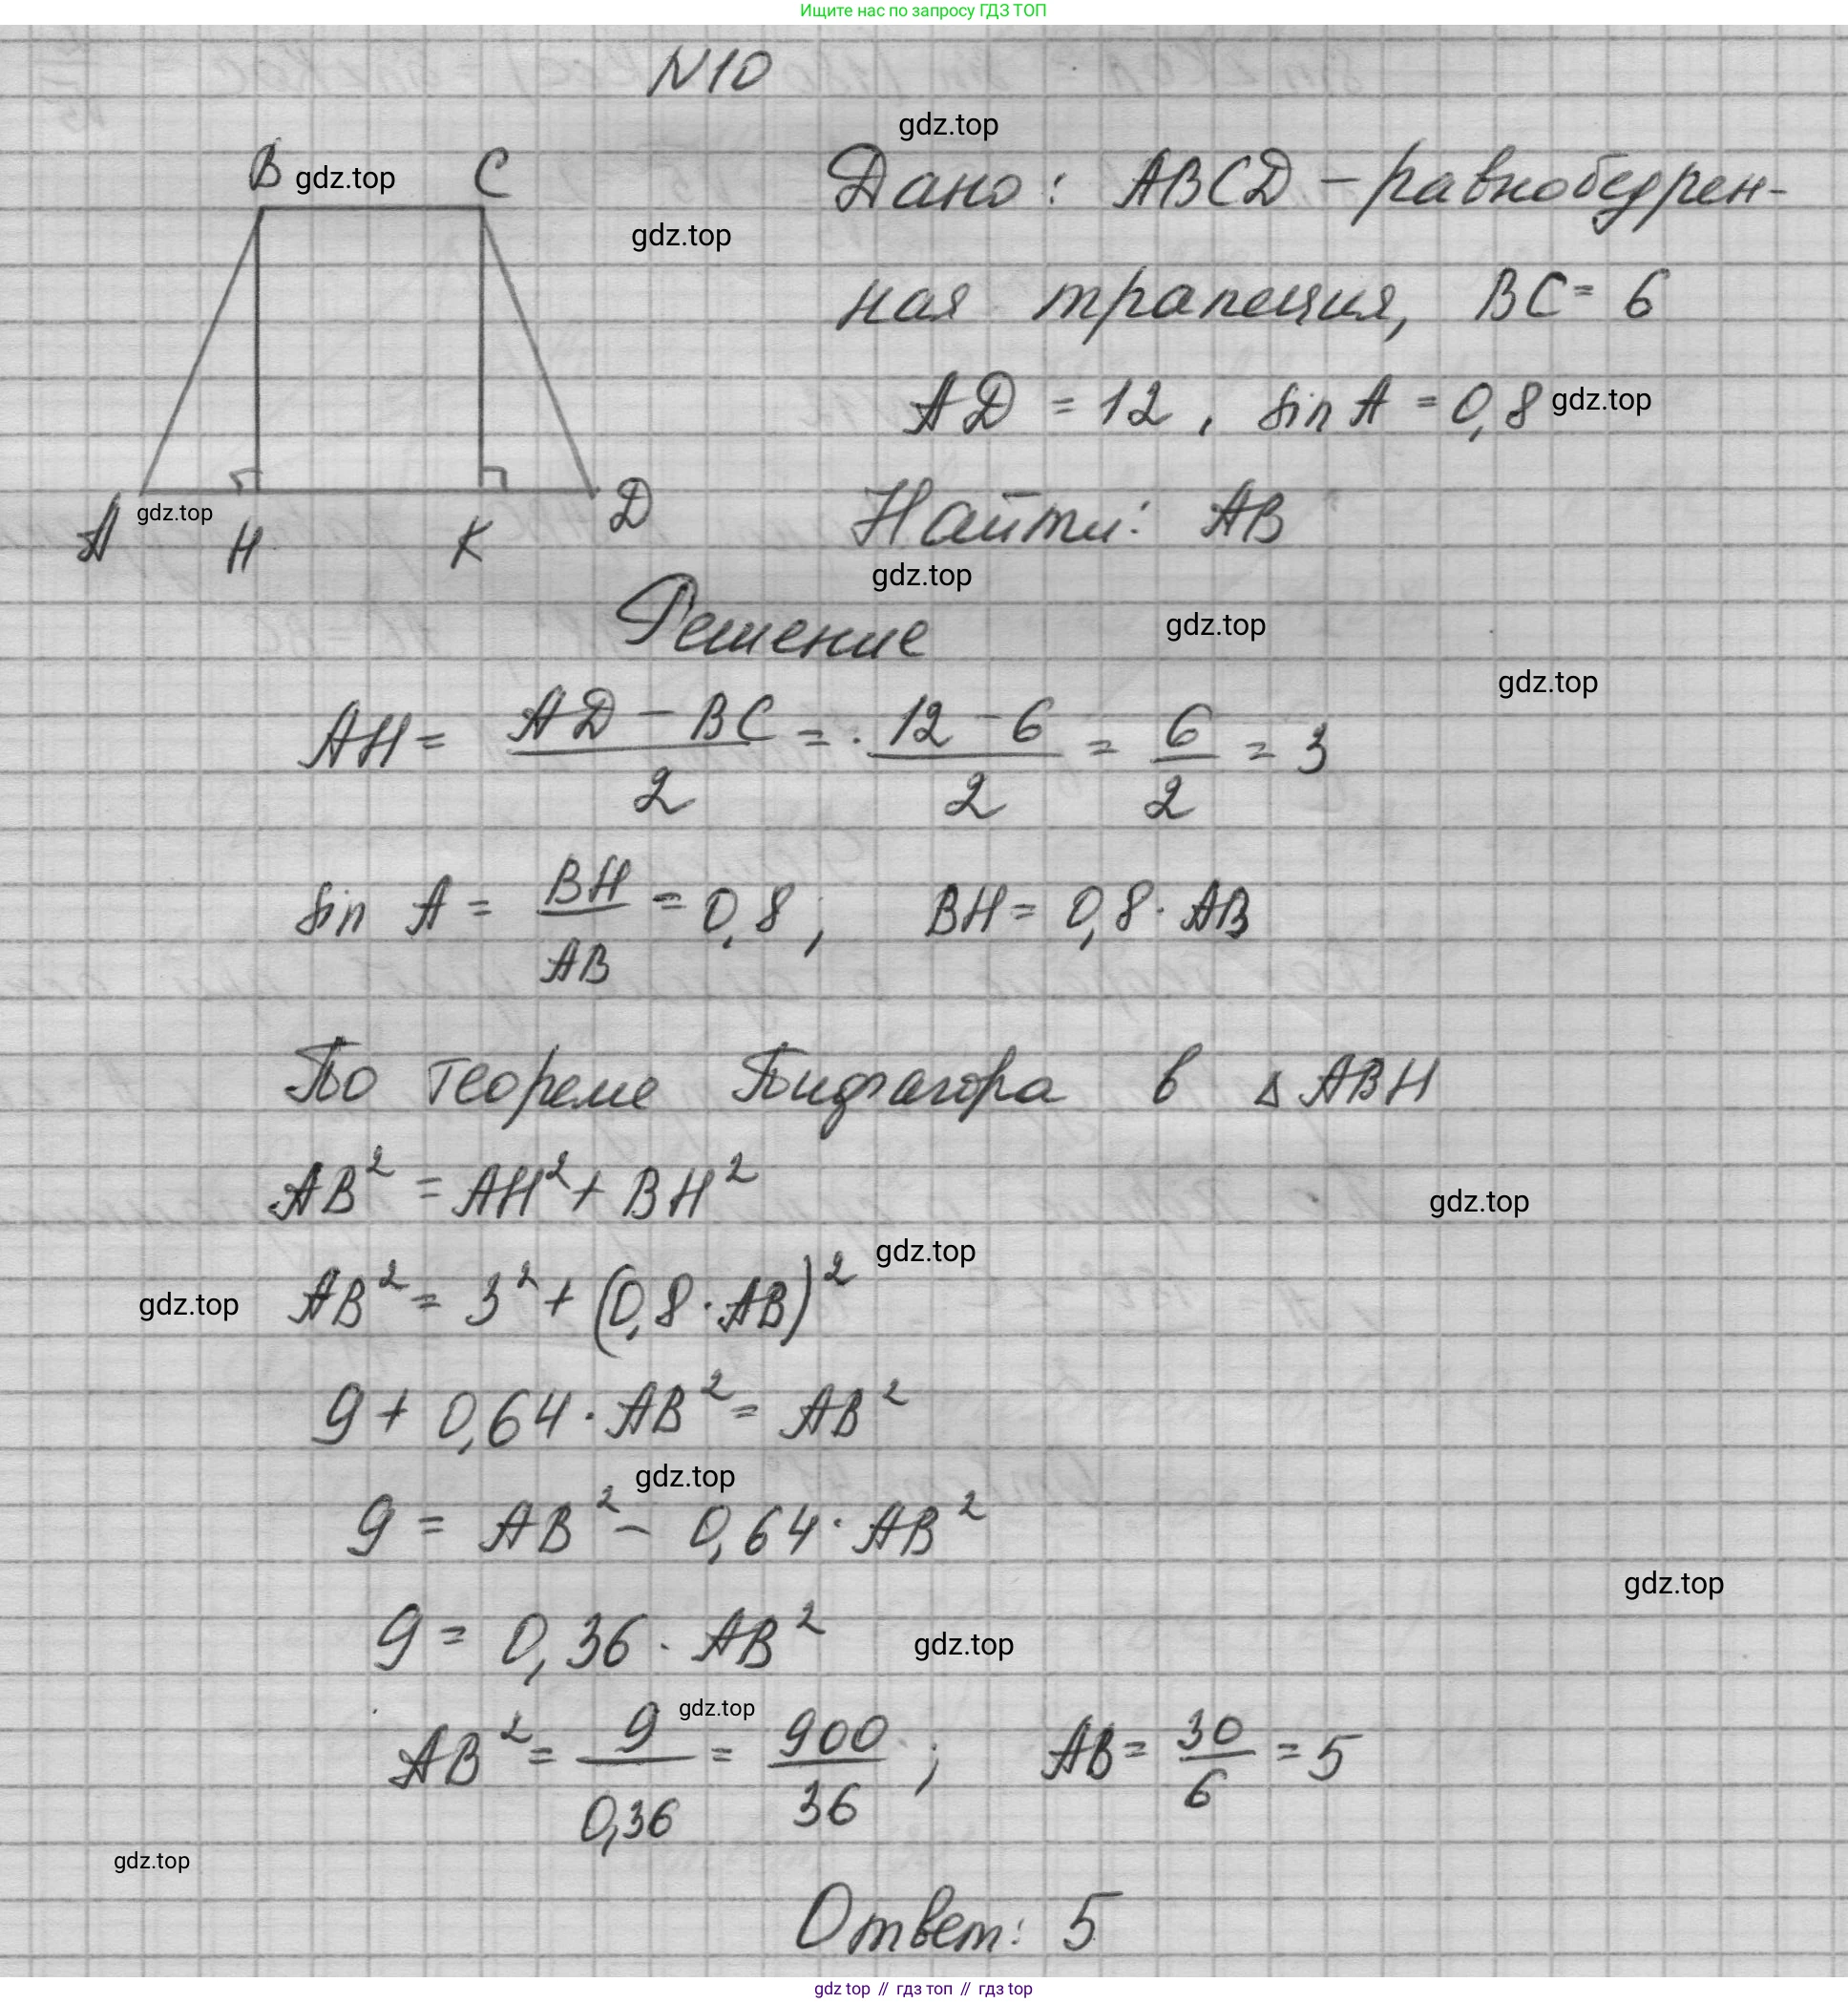 Ищите нас по запросу ГДЗ ТОП
N10
gdz.top
B gdz.top C
Дано: ABCD – равнобедрен-
gdz.top
ная трапеция, BC = 6
AD = 12, sin A = 0,8 gdz.top
A gdz.top H K D
Найти: AB
gdz.top
Решение
gdz.top
gdz.top
AH = (AD – BC)/2 = (12 – 6)/2 = 6/2 = 3
sin A = BH/AB = 0,8; BH = 0,8 · AB
По теореме Пифагора в △ABH
AB² = AH² + BH²
gdz.top
gdz.top
gdz.top
AB² = 3² + (0,8 · AB)²
9 + 0,64 · AB² = AB²
gdz.top
9 = AB² – 0,64 · AB²
gdz.top
9 = 0,36 · AB²
gdz.top
gdz.top
AB² = 9/0,36 = 900/36; AB = 30/6 = 5
gdz.top
Ответ: 5
gdz top // гдз топ // гдз top